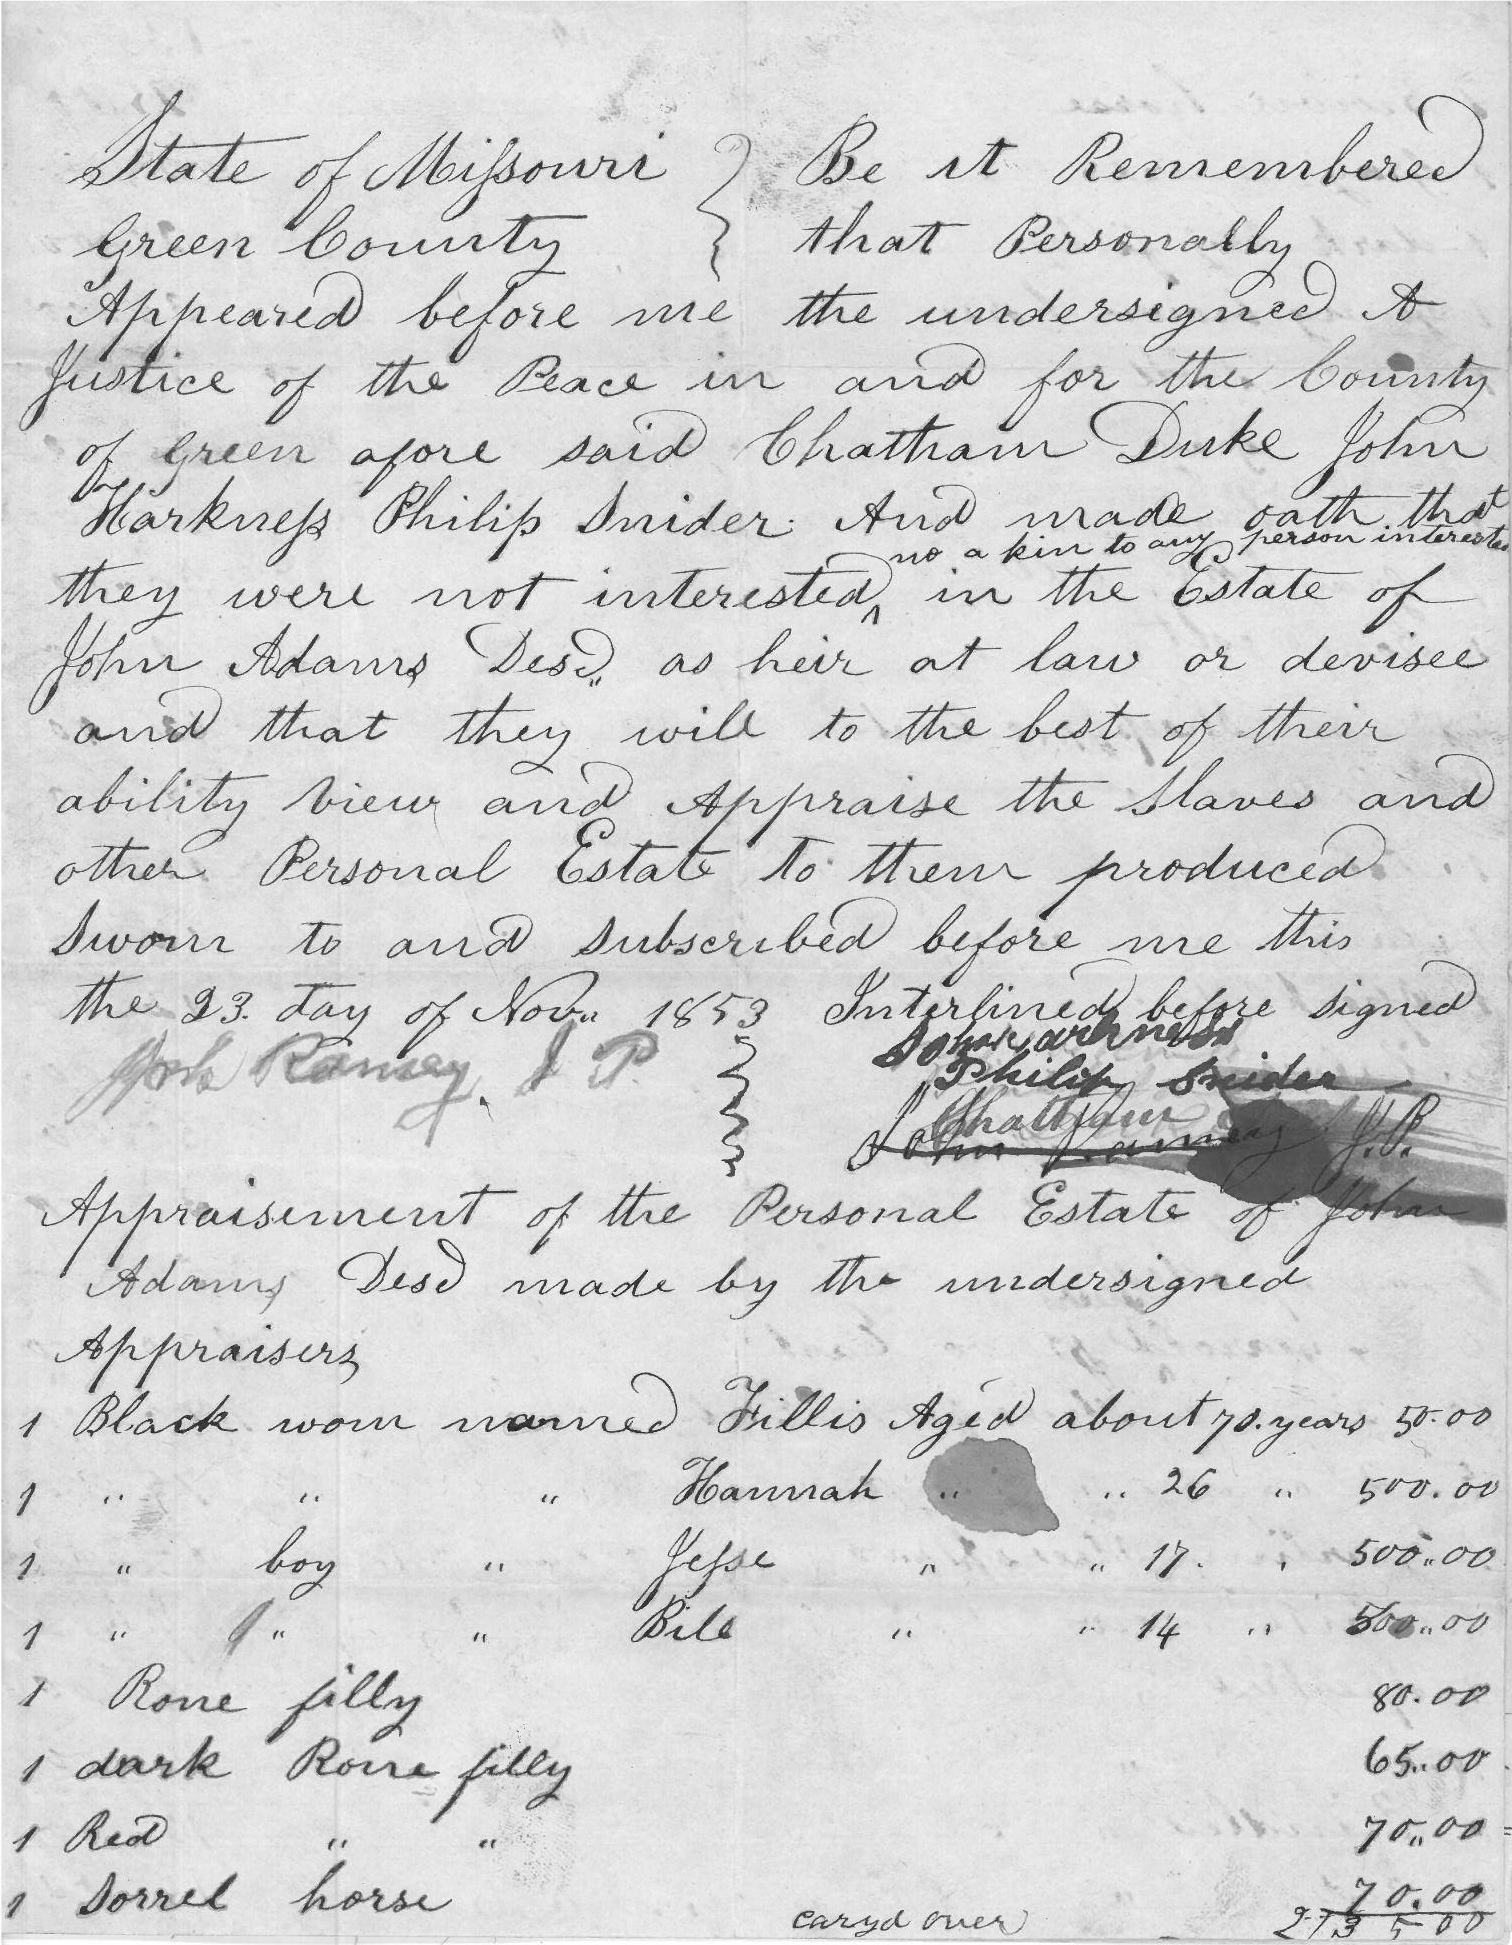 State of Missouri } Be it Remembered
Green County } that Personally
Appeared before me the undersigned A
Justice of the Peace in and for the County
of Green afore said Chatham Duke John
Harkness Philip Snider And made oath that
no a kin to any person interested
they were not interested ^ in the Estate of
John Adams Desd,, as heir at law or devisee
and that they will to the best of their
ability view and Appraise the Slaves and
other Personal Estate to them produced
Sworn to and Subscribed before me this
the 23. day of Nov,, 1853 Interlined before signed
John Ramey, J P. } John Harkness
Philip Snider
Chattham
John Ramey J.P.
Appraisement of the Personal Estate of John
Adams Desd made by the undersigned
Appraisers
1 Black wom named Fillis Aged about 70. years 50.00
1 " " " Hannah " " 26 " 500.00
1 " boy " Jesse " " 17. " 500,,00
1 " " " Bill " " 14 " 500,,00
1 Rone filly 80.00
1 dark Rone filly 65,,00
1 Red " " 70,,00
1 Sorrel horse 70.00
caryd over